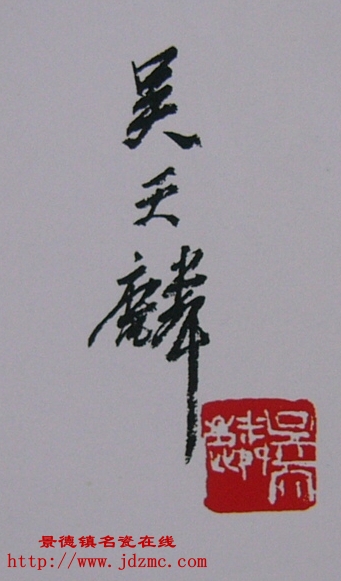 吴天麟
景德镇名瓷在线
http://www.jdzmc.com